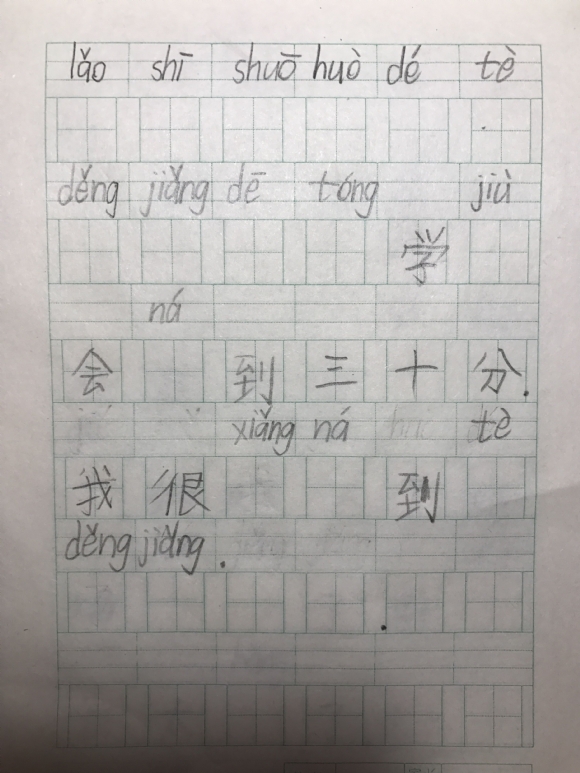 lǎo shī shuō huò dé tè
děng jiǎng dē tóng jiù
学
ná
会 到 三 十 分.
xiǎng ná tè
我 很 到
děng jiǎng .